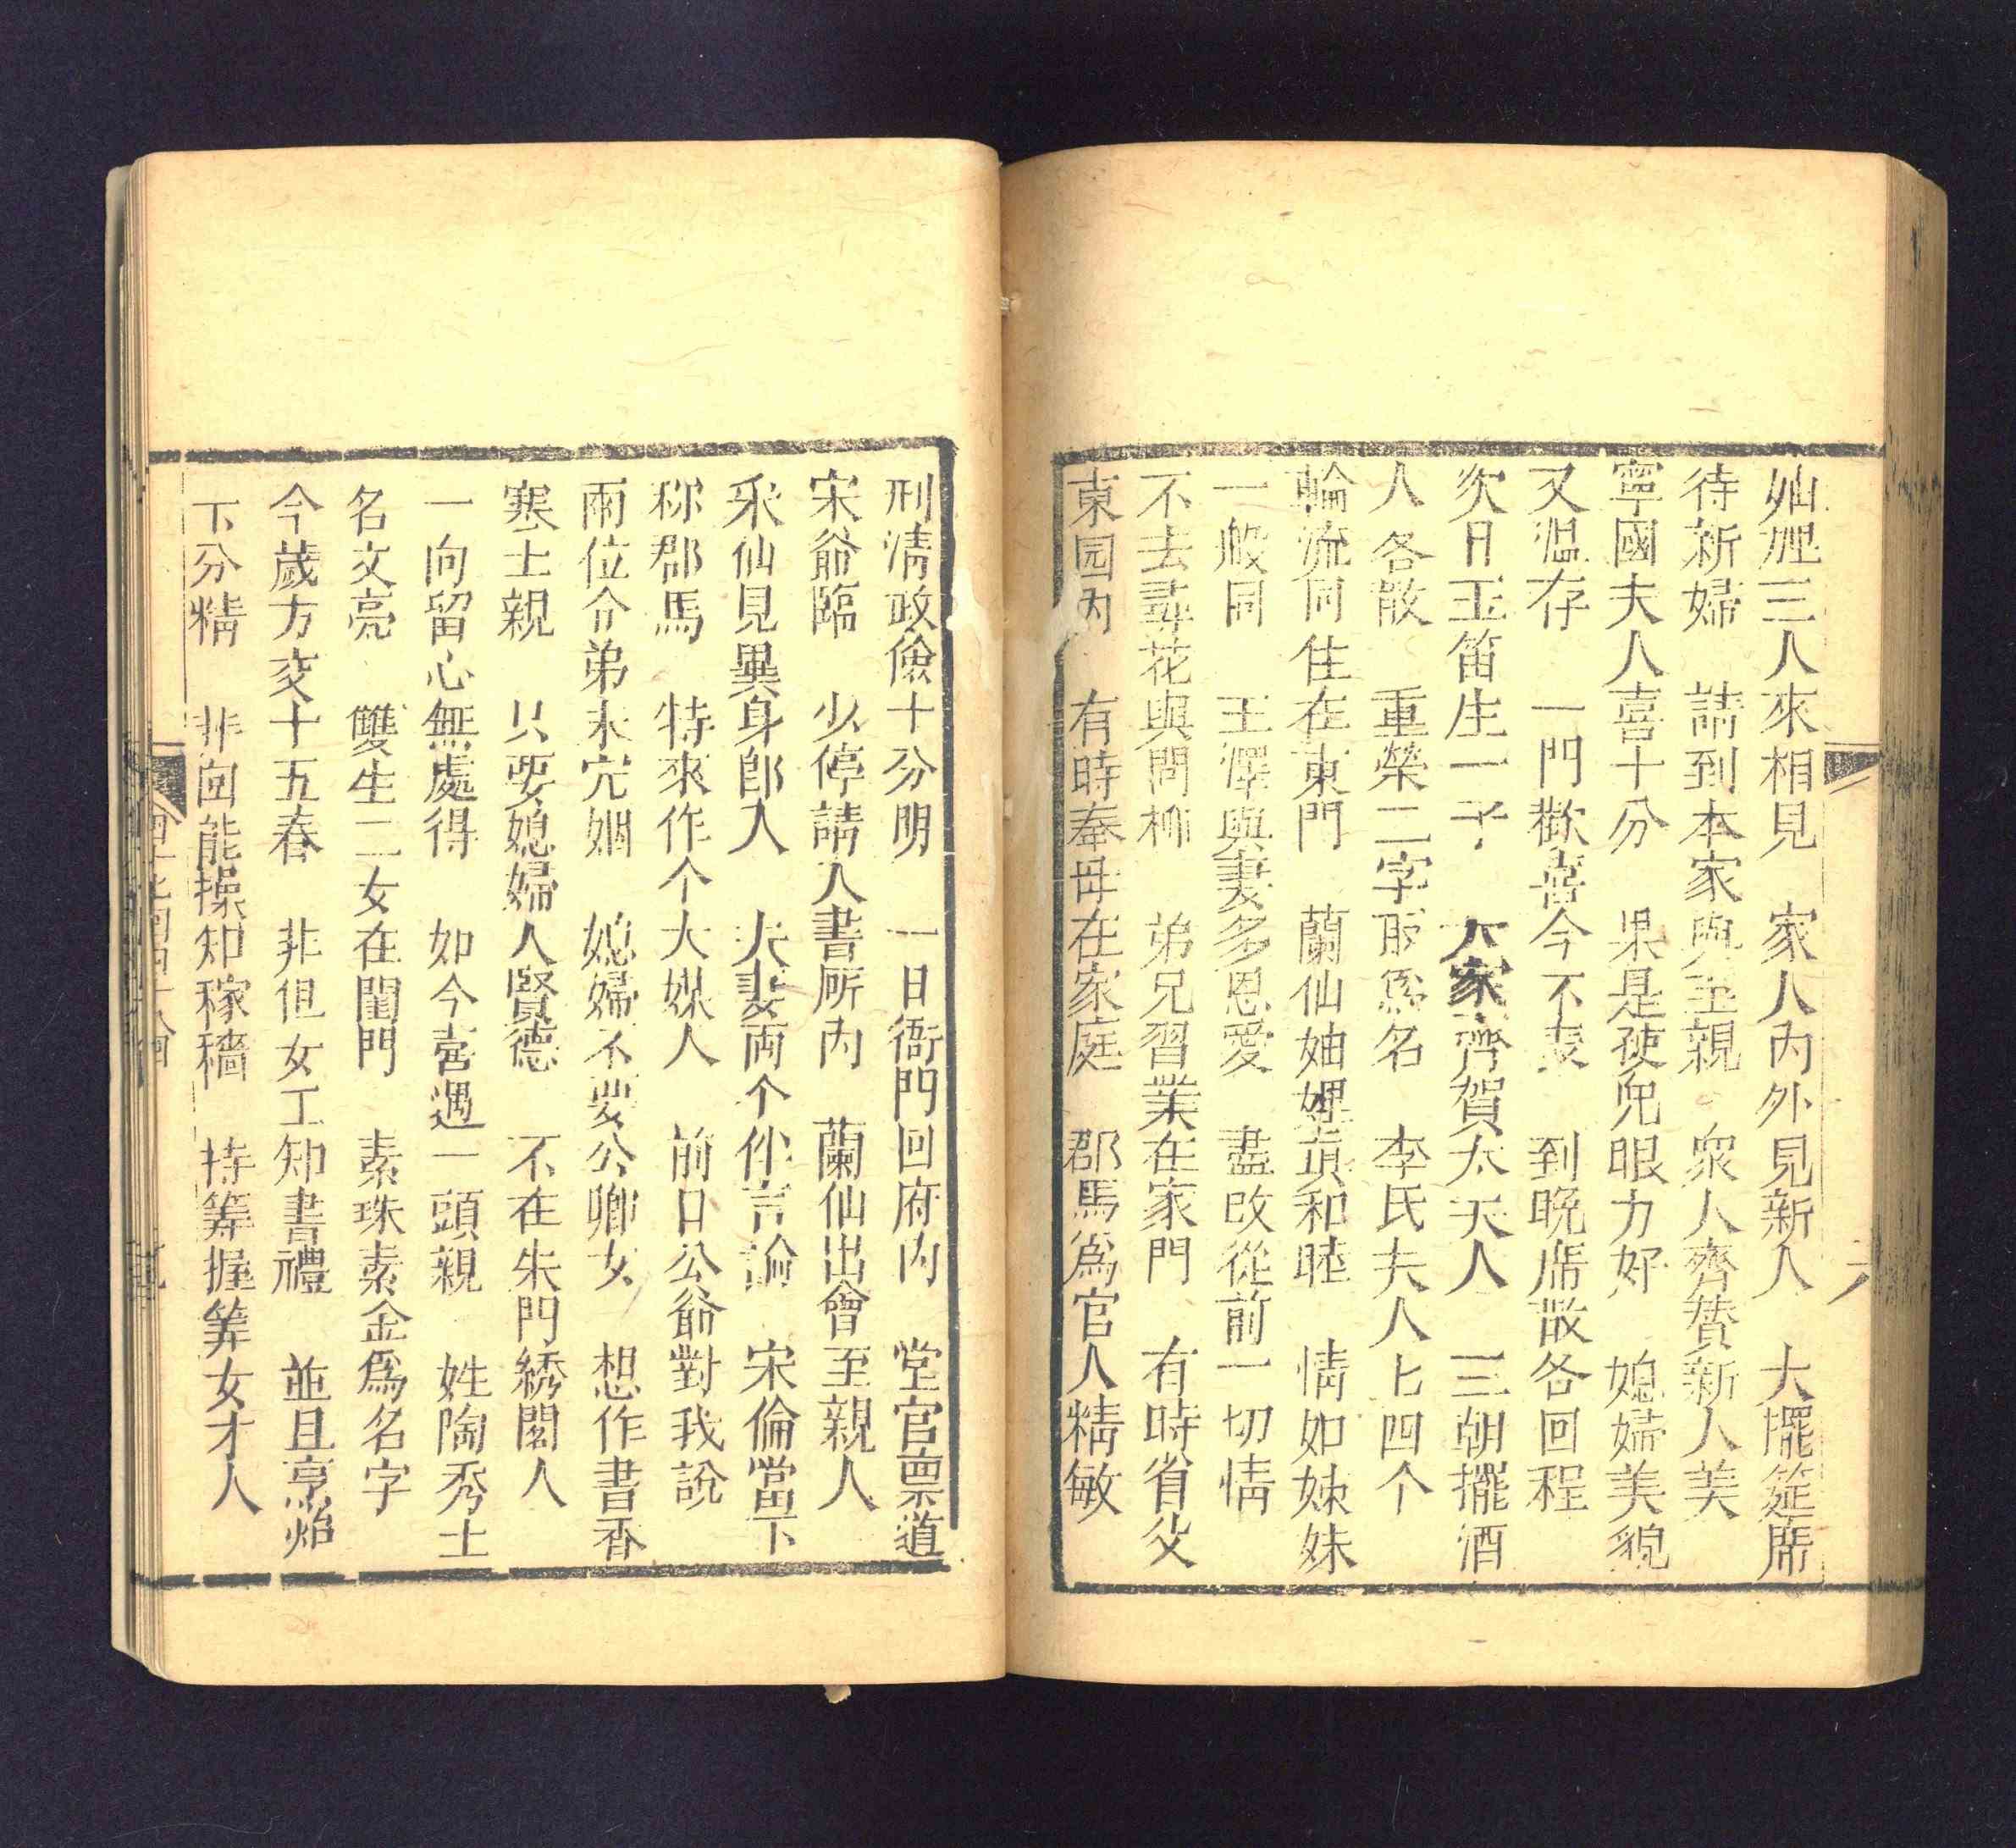 妯娌三人來相見　家人內外見新人　大擺筵席
待新婦　請到本家與至親　眾人齊賛新人美
寧國夫人喜十分　果是使児眼力好　媳婦美貌
又溫存　一門歡喜今不表　到晚席散各回程
次日玉笛生一子　大家齊賀太夫人　三朝擺酒
人各散　重榮二字取為名　李氏夫人七四个
輪流同住在東門　蘭仙妯娌真和睦　情如姊妹
一般同　王澤與妻多恩愛　盡改從前一切情
不去尋花與問柳　弟兄習業在家門　有時省父
東园內　有時奉母在家庭　郡馬為官人精敏
刑清政儉十分明　一日衙門回府內　堂官禀道
宋爺臨　少停請入書房內　蘭仙出會至親人
釆仙見異身郎入　夫妻両个伴言論　宋倫當下
称郡馬　特來作个大媒人　前日公爺對我說
兩位介弟未完姻　媳婦不要公卿女　想作書香
寒士親　只要媳婦人賢德　不在朱門綉閣人
一向留心無處得　如今喜遇一頭親　姓陶秀士
名文亮　雙生二女在閨門　素珠素金為名字
今歲方交十五春　非但女工知書禮　並且亨
十分精　非因能操知稼穡　持筭握筭女才人